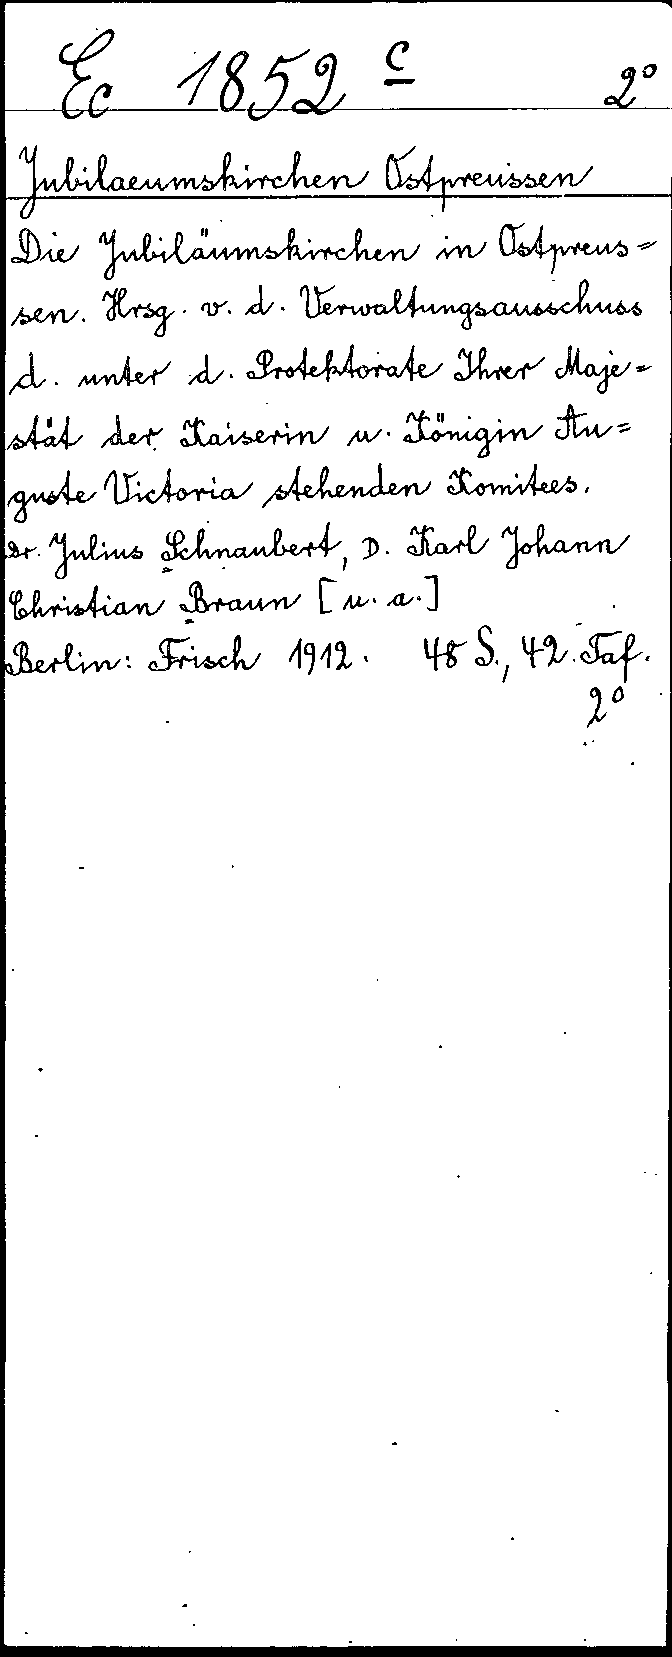 Ec 1852 c 2°
Jubilaeumskirchen Ostpreussen
Die Jubiläumskirchen in Ostpreus=
sen. Hrsg. v. d. Verwaltungsausschuss
d. unter d. Protektorate Ihrer Maje=
stät der Kaiserin u. Königin Au=
guste Victoria stehenden Komitees.
Dr. Julius Schnaubert, D. Karl Johann
Christian Braun [u. a.]
Berlin: Frisch 1912. 48 S., 42 Taf.
2°